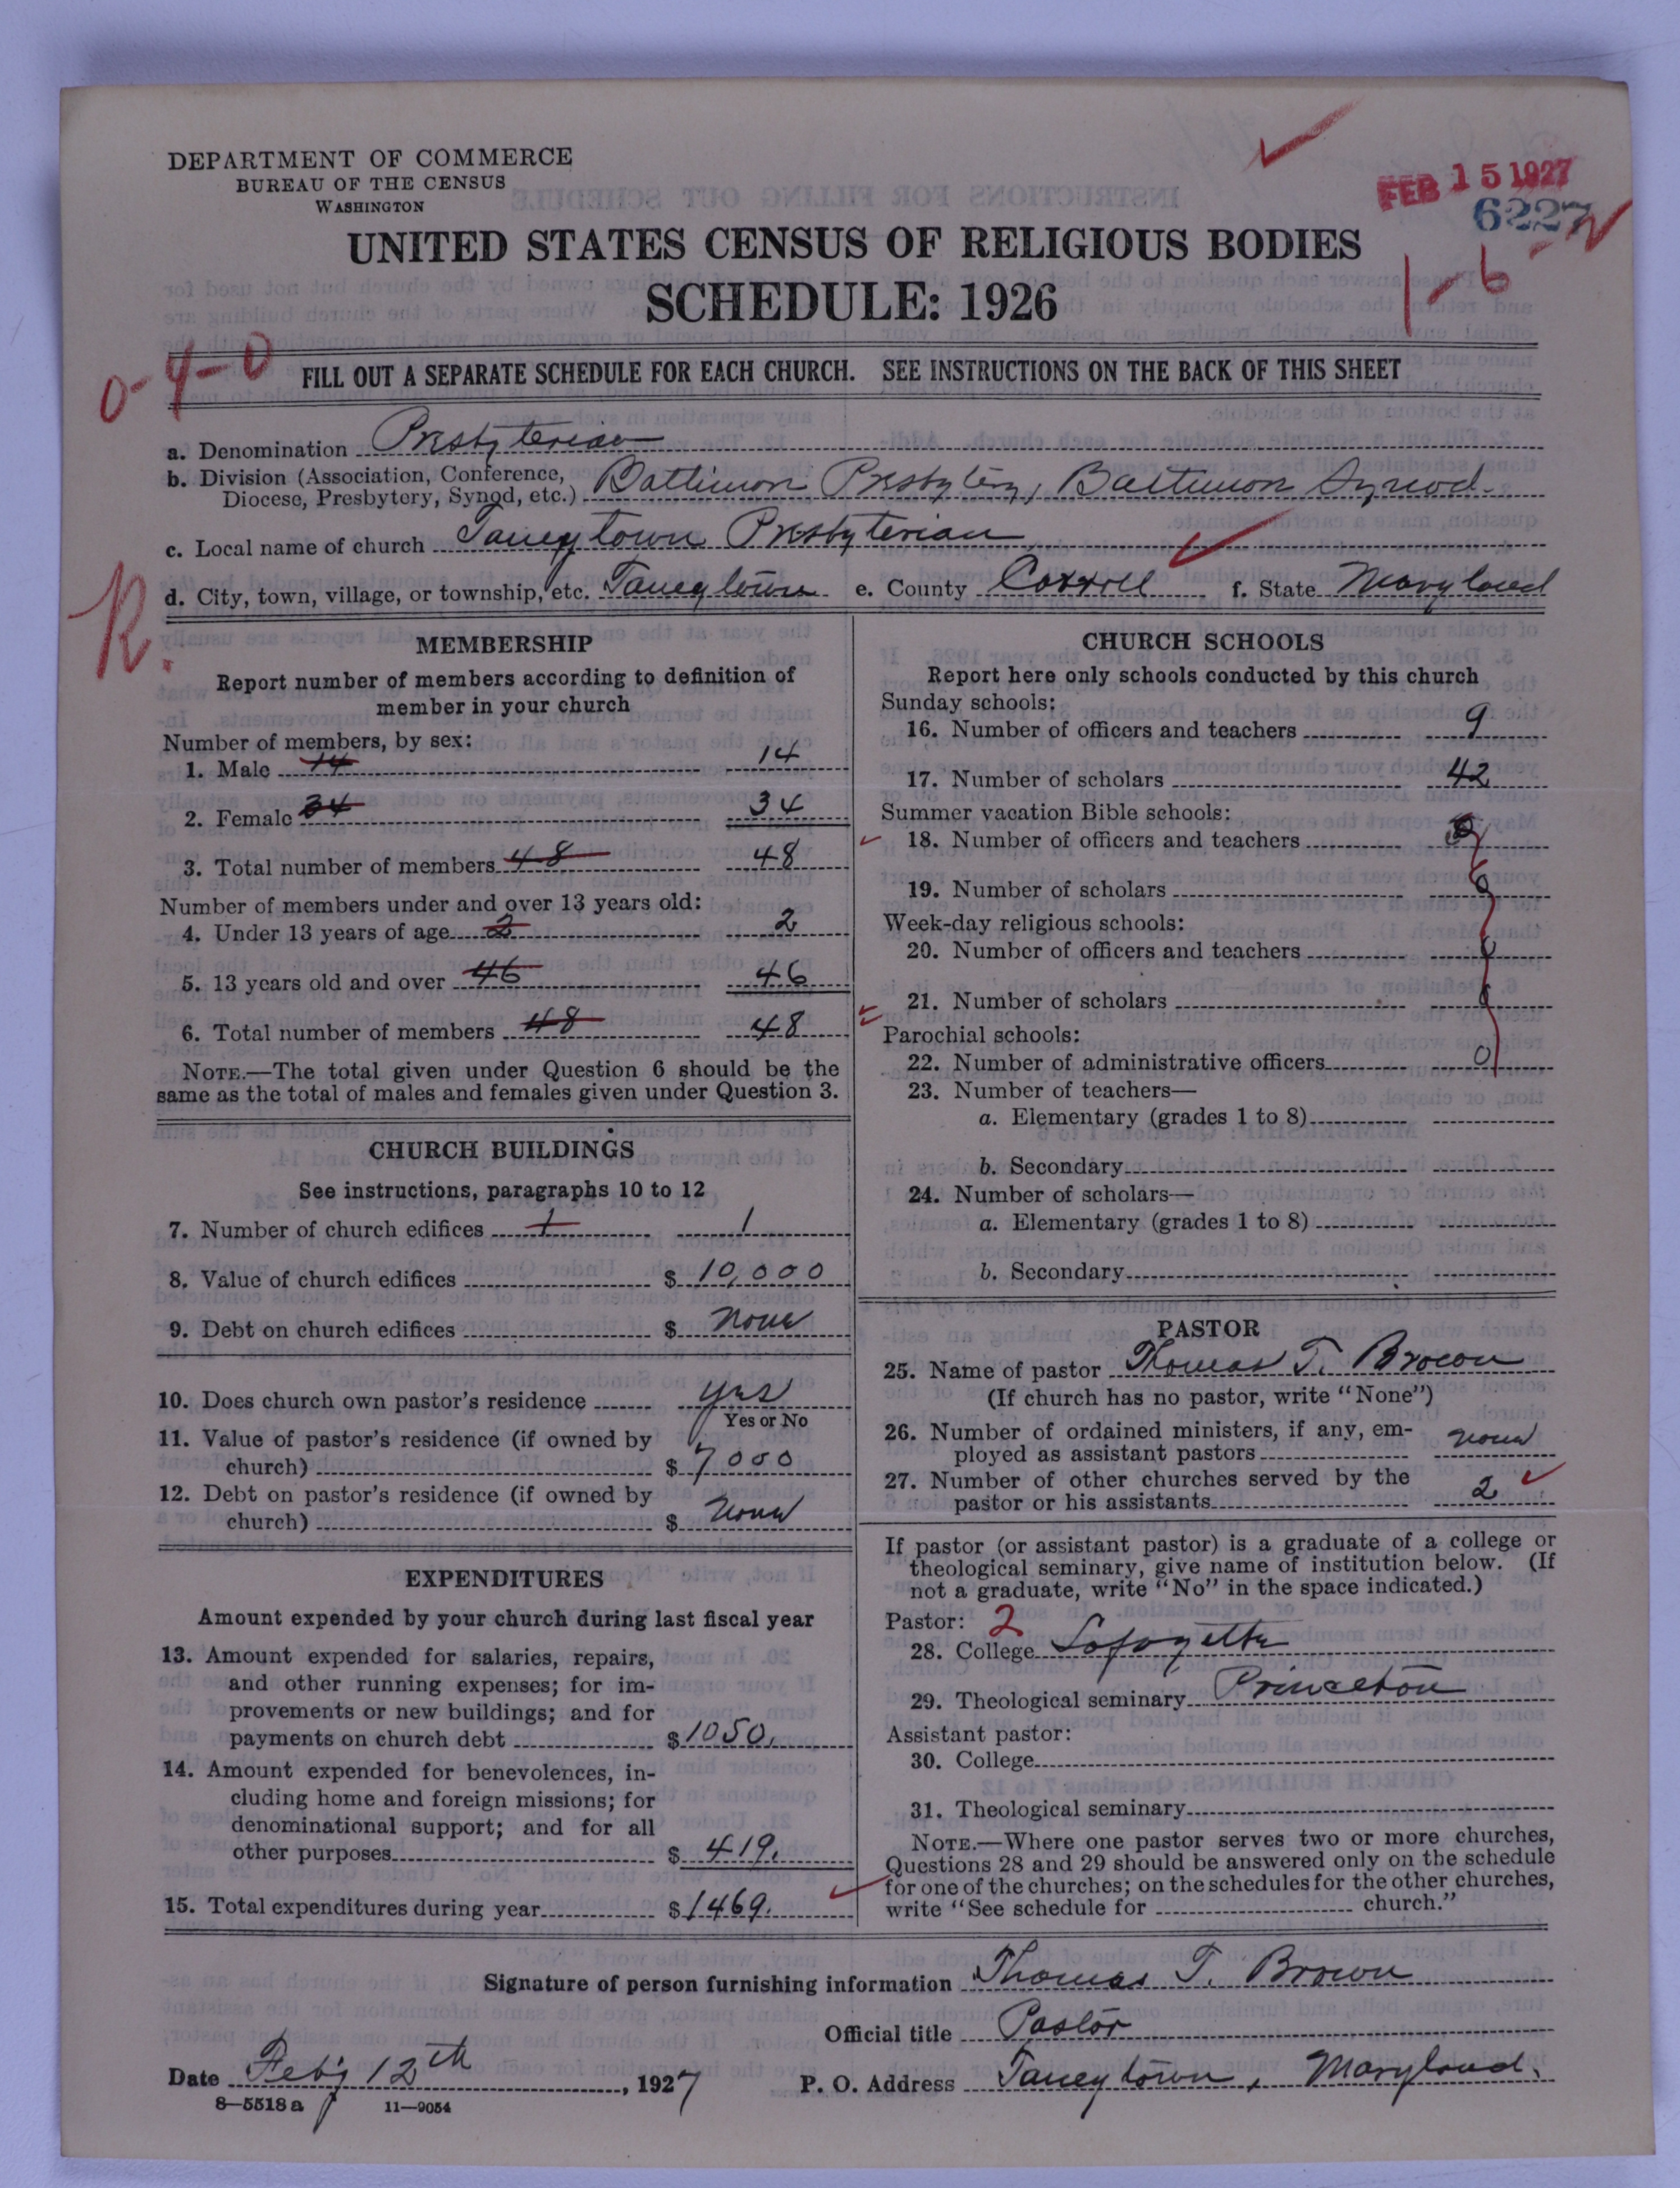 DEPARTMENT OF COMMERCE
BUREAU OF THE CENSUS
WASHINGTON
FEB 15 1927
6227
UNITED STATES CENSUS OF RELIGIOUS BODIES
SCHEDULE: 1926
1-6
0-4-0
FILL OUT A SEPARATE SCHEDULE FOR EACH CHURCH. SEE INSTRUCTIONS ON THE BACK OF THIS SHEET
a. Denomination Presbyterian
b. Division (Association, Conference, Diocese, Presbytery, Synod, etc.) Baltimore Presbytery, Baltimore Synod
c. Local name of church Taneytown Presbyterian
d. City, town, village, or township, etc. Taneytown e. County Carroll f. State Maryland
R.
MEMBERSHIP
Report number of members according to definition of
member in your church
Number of members, by sex:
1. Male 14 14
2. Female 34 34
3. Total number of members 48 48
Number of members under and over 13 years old:
4. Under 13 years of age 2 2
5. 13 years old and over 46 46
6. Total number of members 48 48
NOTE.—The total given under Question 6 should be the
same as the total of males and females given under Question 3.
CHURCH BUILDINGS
See instructions, paragraphs 10 to 12
7. Number of church edifices 1 1
8. Value of church edifices $ 10,000
9. Debt on church edifices $ None
10. Does church own pastor's residence yes
Yes or No
11. Value of pastor's residence (if owned by
church) $ 7000
12. Debt on pastor's residence (if owned by
church) $ None
EXPENDITURES
Amount expended by your church during last fiscal year
13. Amount expended for salaries, repairs,
and other running expenses; for im-
provements or new buildings; and for
payments on church debt $ 1050.
14. Amount expended for benevolences, in-
cluding home and foreign missions; for
denominational support; and for all
other purposes $ 419.
15. Total expenditures during year $ 1469.
CHURCH SCHOOLS
Report here only schools conducted by this church
Sunday schools:
16. Number of officers and teachers 9
17. Number of scholars 42
Summer vacation Bible schools:
18. Number of officers and teachers 0
19. Number of scholars 0
Week-day religious schools:
20. Number of officers and teachers 0
21. Number of scholars 0
Parochial schools:
22. Number of administrative officers 0
23. Number of teachers—
a. Elementary (grades 1 to 8)
b. Secondary
24. Number of scholars—
a. Elementary (grades 1 to 8)
b. Secondary
PASTOR
25. Name of pastor Thomas T. Brown
(If church has no pastor, write "None")
26. Number of ordained ministers, if any, em-
ployed as assistant pastors None
27. Number of other churches served by the
pastor or his assistants 2
If pastor (or assistant pastor) is a graduate of a college or
theological seminary, give name of institution below. (If
not a graduate, write "No" in the space indicated.)
Pastor: 2
28. College Lafayette
29. Theological seminary Princeton
Assistant pastor:
30. College
31. Theological seminary
NOTE.—Where one pastor serves two or more churches,
Questions 28 and 29 should be answered only on the schedule
for one of the churches; on the schedules for the other churches,
write "See schedule for church."
Signature of person furnishing information Thomas T. Brown
Official title Pastor
Date Feb'y 12th, 1927 P. O. Address Taneytown, Maryland.
8—5518a 11—9054